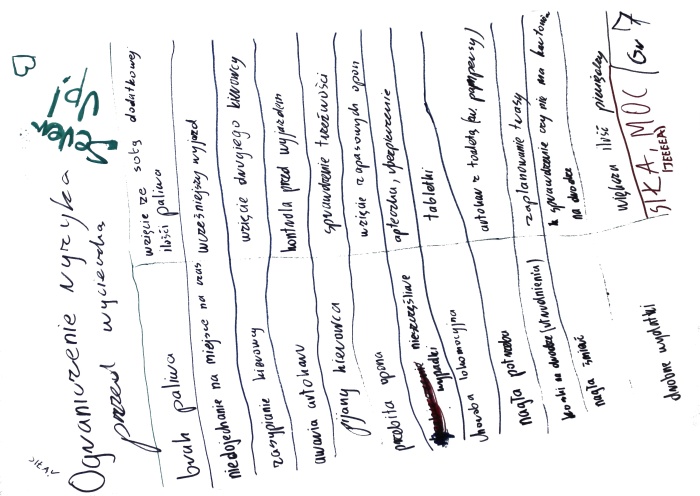 Ograniczenie Ryzyka
przed wycieczką
brak paliwa
wzięcie ze sobą dodatkowej
ilości paliwa
niedojechanie na miejsce na czas
wcześniejszy wyjazd
zasypianie kierowcy
wzięcie drugiego kierowcy
awaria autokaru
kontrola przed wyjazdem
pijany kierowca
sprawdzenie trzeźwości
przebita opona
wzięcie zapasowych opon
nieszczęśliwe
wypadki
apteczka, ubezpieczenie
choroba lokomocyjna
tabletki
nagła potrzeba
autokar z toaletą (lub pampersy)
korki na drodze (utrudnienia)
zaplanowanie trasy
nagła śmierć
sprawdzenie czy nie ma
na drodze
drobne wydatki
większa ilość pieniędzy
SIKA, MOC
(JEEEEA)
Gr 7